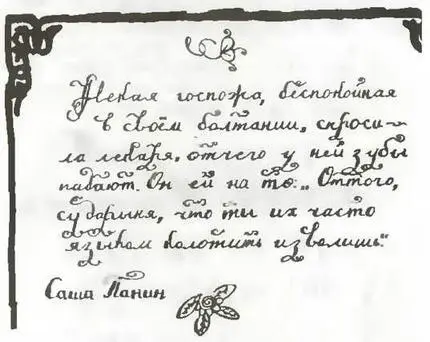 Некая госпожа, беспокойная
в своём болтании, спроси-
ла лекаря, отчего у ней зубы
падают. Он ей на то: „Оттого,
сударыня, что ты их часто
языком колотить изволишь."
Саша Панин